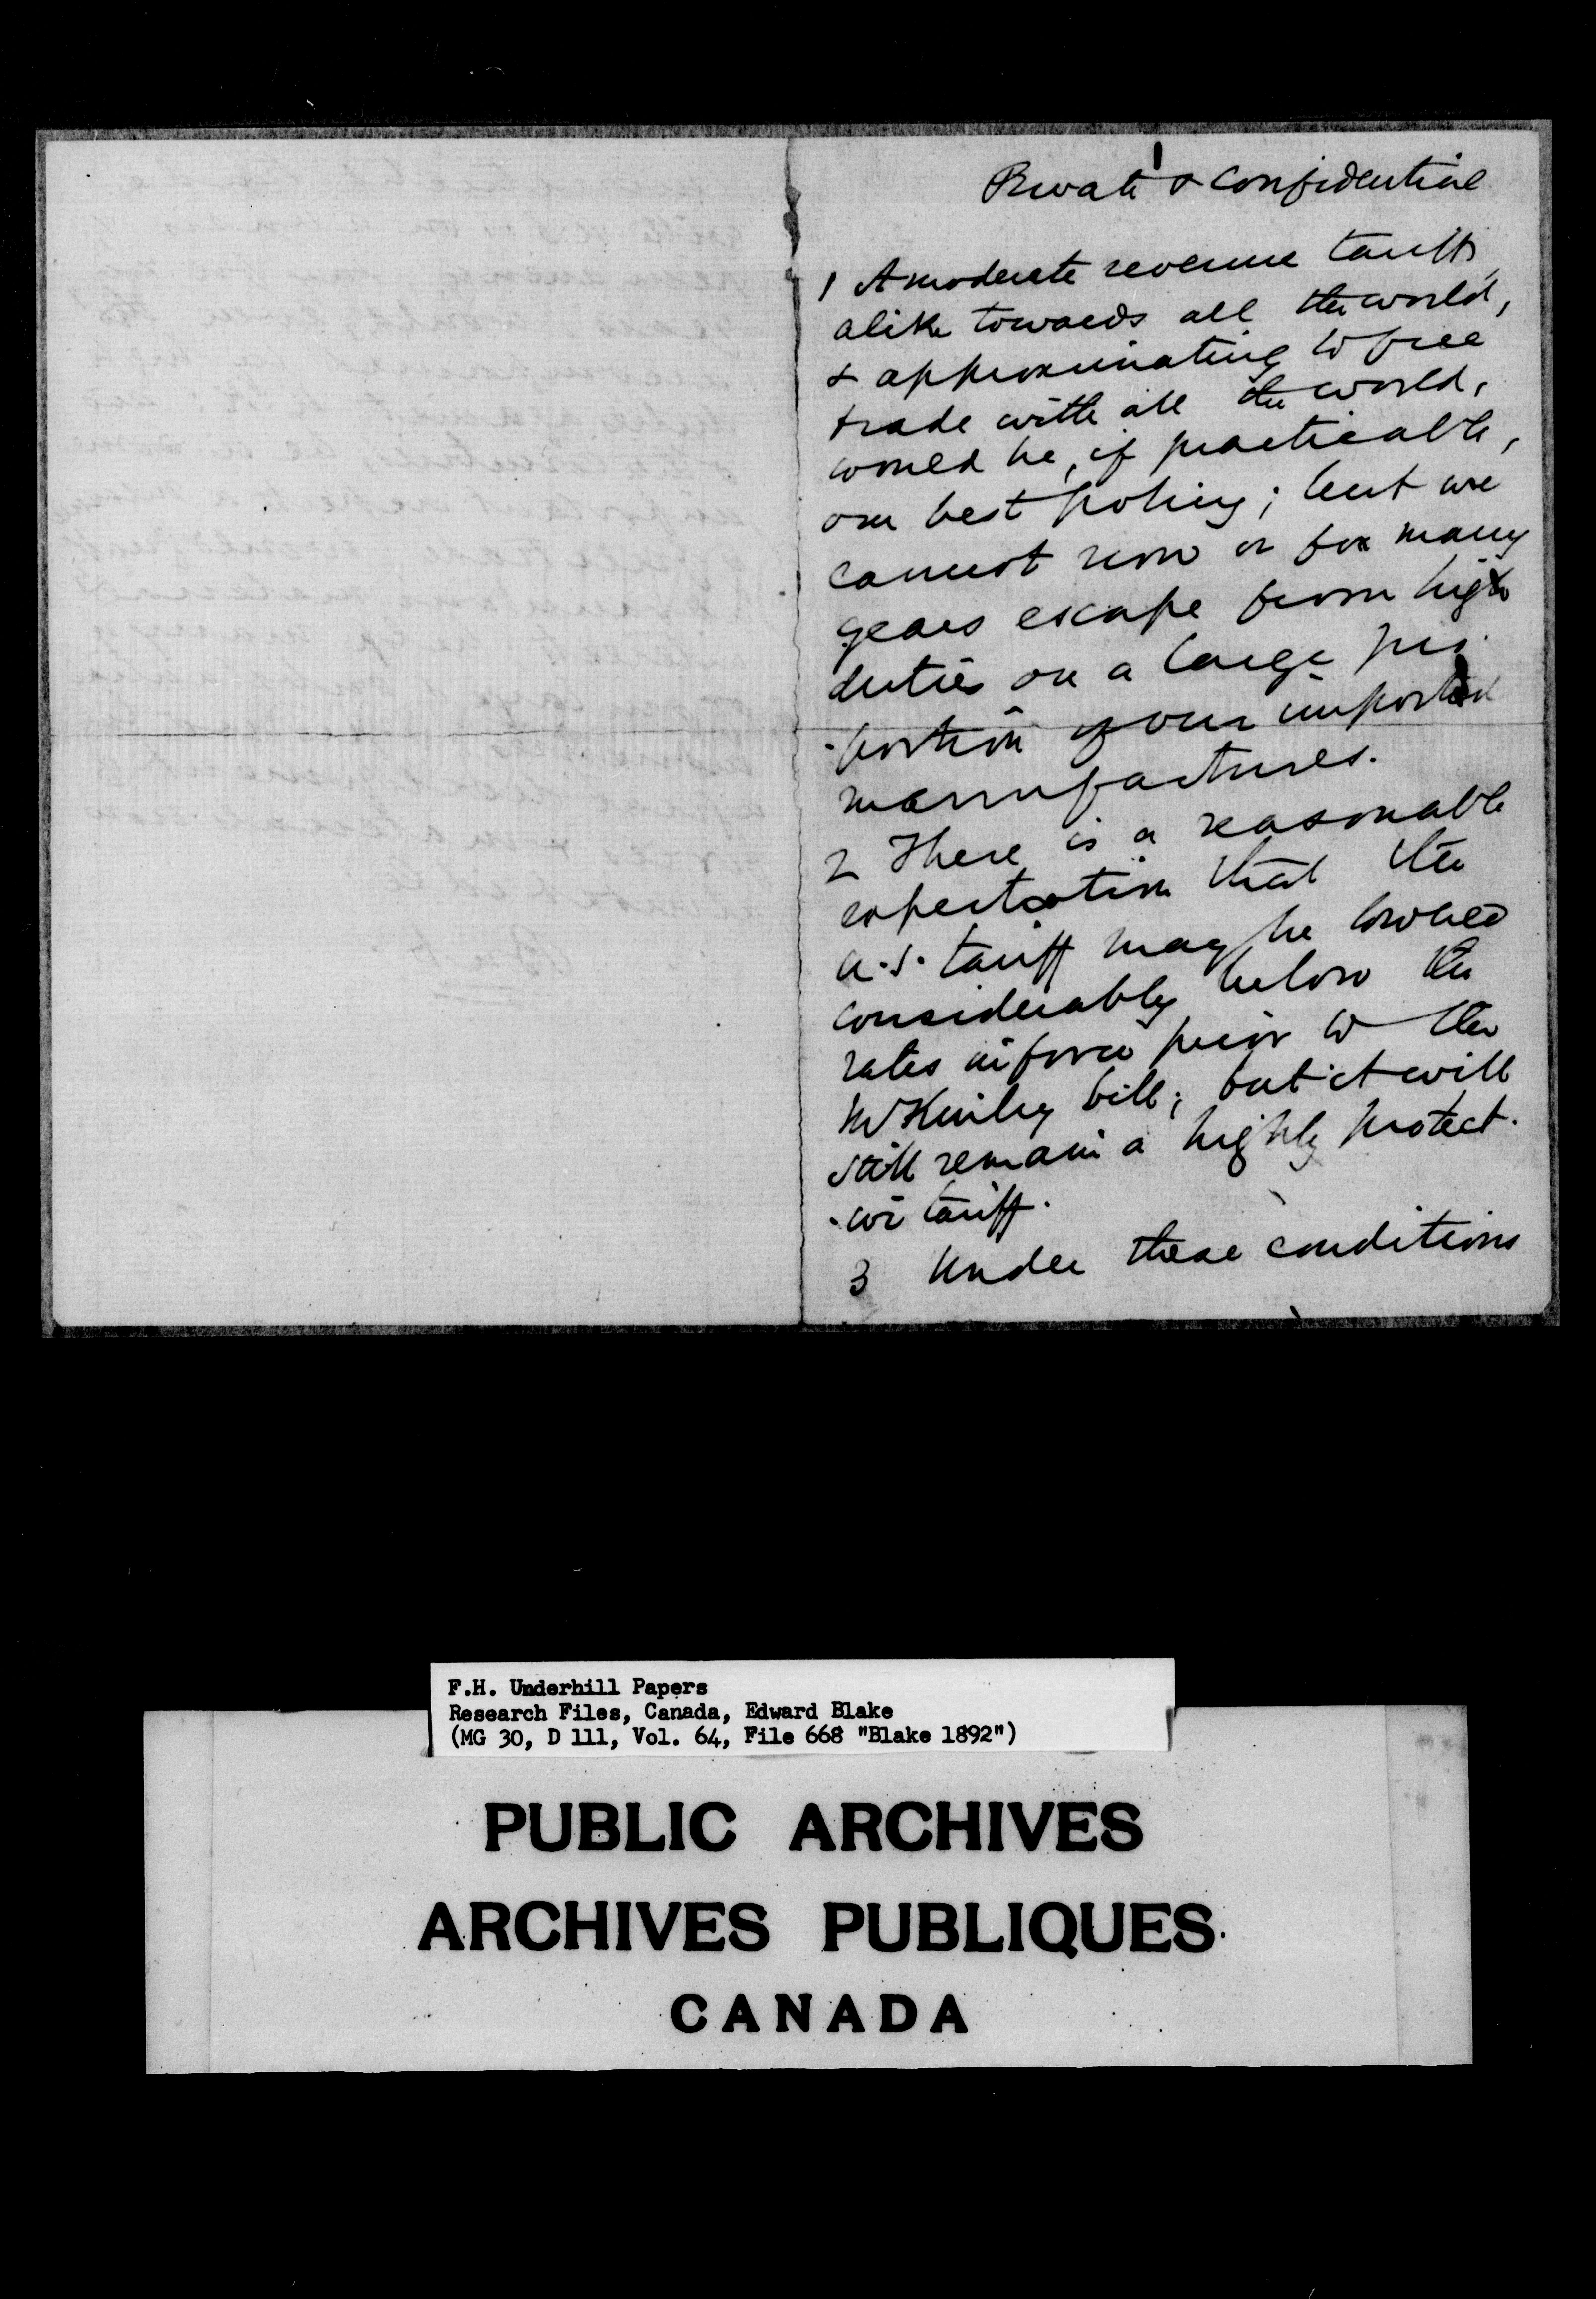 1
Private & confidential
1 A moderate revenue tariff,
alike towards all the world,
& approximating to free
trade with all the world,
would be, if practicable,
our best policy; but we
cannot now or for many
years escape from high
duties on a large pro-
-portion of our imported
manufactures.
2 There is a reasonable
expectation that the
U.S. tariff may be lowered
considerably below the
rates in force prior to the
McKinley bill; but it will
still remain a highly protect-
-ive tariff.
3 Under these conditions
F.H. Underhill Papers
Research Files, Canada, Edward Blake
(MG 30, D 111, Vol. 64, File 668 "Blake 1892")
PUBLIC ARCHIVES
ARCHIVES PUBLIQUES
CANADA